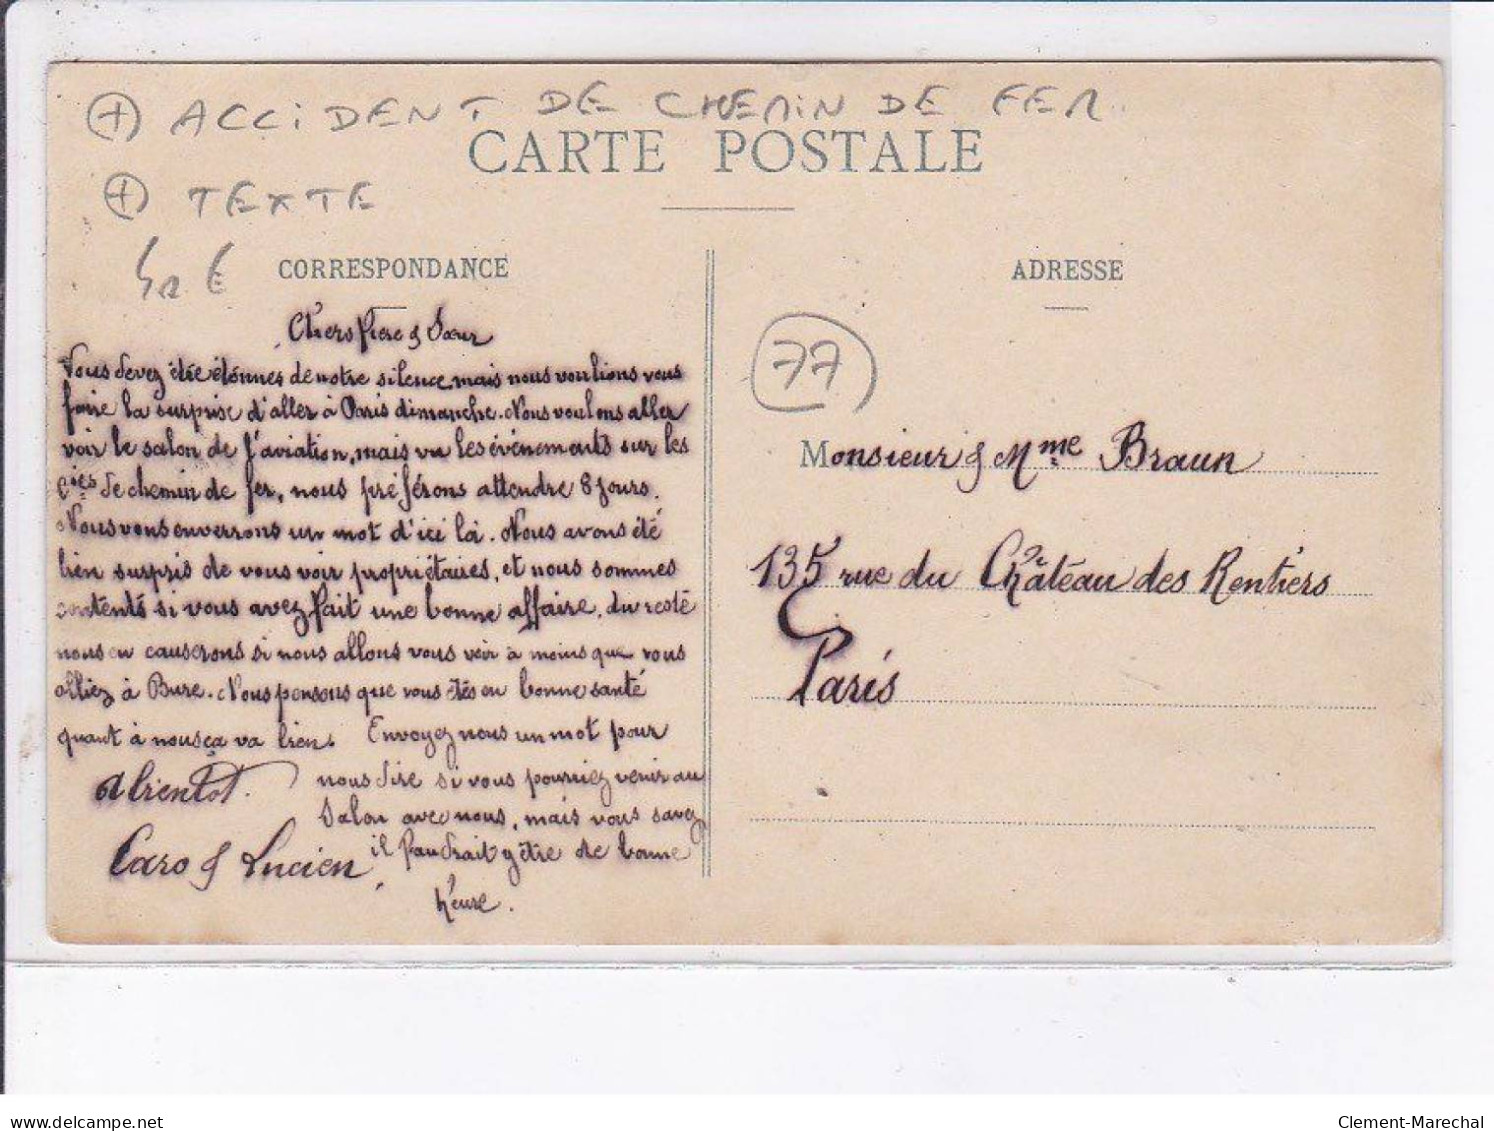 + ACCIDENT DE CHEMIN DE FER
CARTE POSTALE
+ TEXTE
€
CORRESPONDANCE
Chers Frère & Sœur
Vous devez être étonnés de notre silence, mais nous voulions vous
faire la surprise d'aller à Paris dimanche. Nous voulons aller
voir le salon de l'aviation, mais vu les événements sur les
Cies de chemin de fer, nous préférons attendre 8 jours.
Nous vous enverrons un mot d'ici là. Nous avons été
bien surpris de vous voir propriétaires, et nous sommes
contents si vous avez fait une bonne affaire. du reste
nous en causerons si nous allons vous voir à moins que vous
alliez à Bure. Nous pensons que vous êtes en bonne santé
quant à nous ça va bien. Envoyez nous un mot pour
nous dire si vous pourriez venir au
Salon avec nous, mais vous savez
il faudrait y être de bonne
heure.
A bientôt.
Caro & Lucien
ADRESSE
77
Monsieur & Mme Braun
135 rue du Château des Rentiers
Paris
delcampe.net
Clement-Marechal